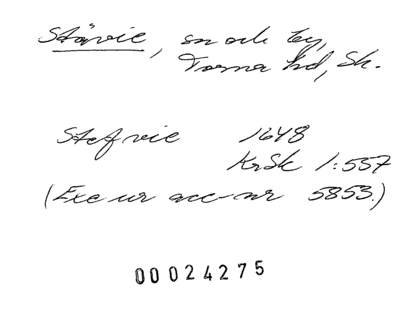 Stävie, sn och by,
Torna hd, Sk.
Stefvie 1648
KrSk 1:557
(Exc ur acc-nr 5853.)
00024275